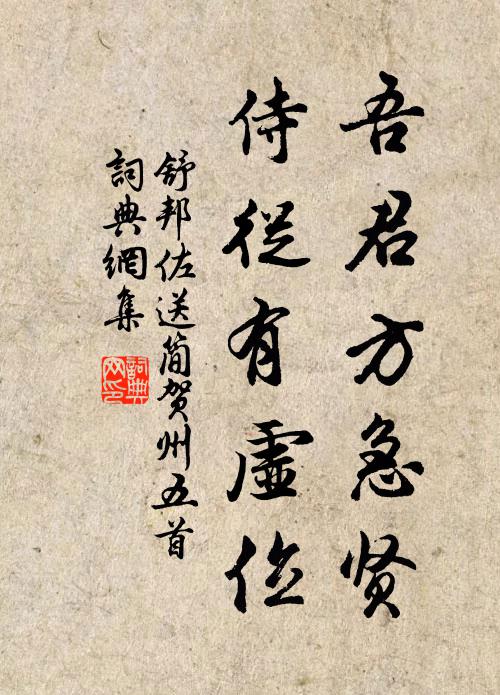 吾君方急贤
侍從有虛位
舒邦佐送简贺州五首
詞典網集
詞典网印